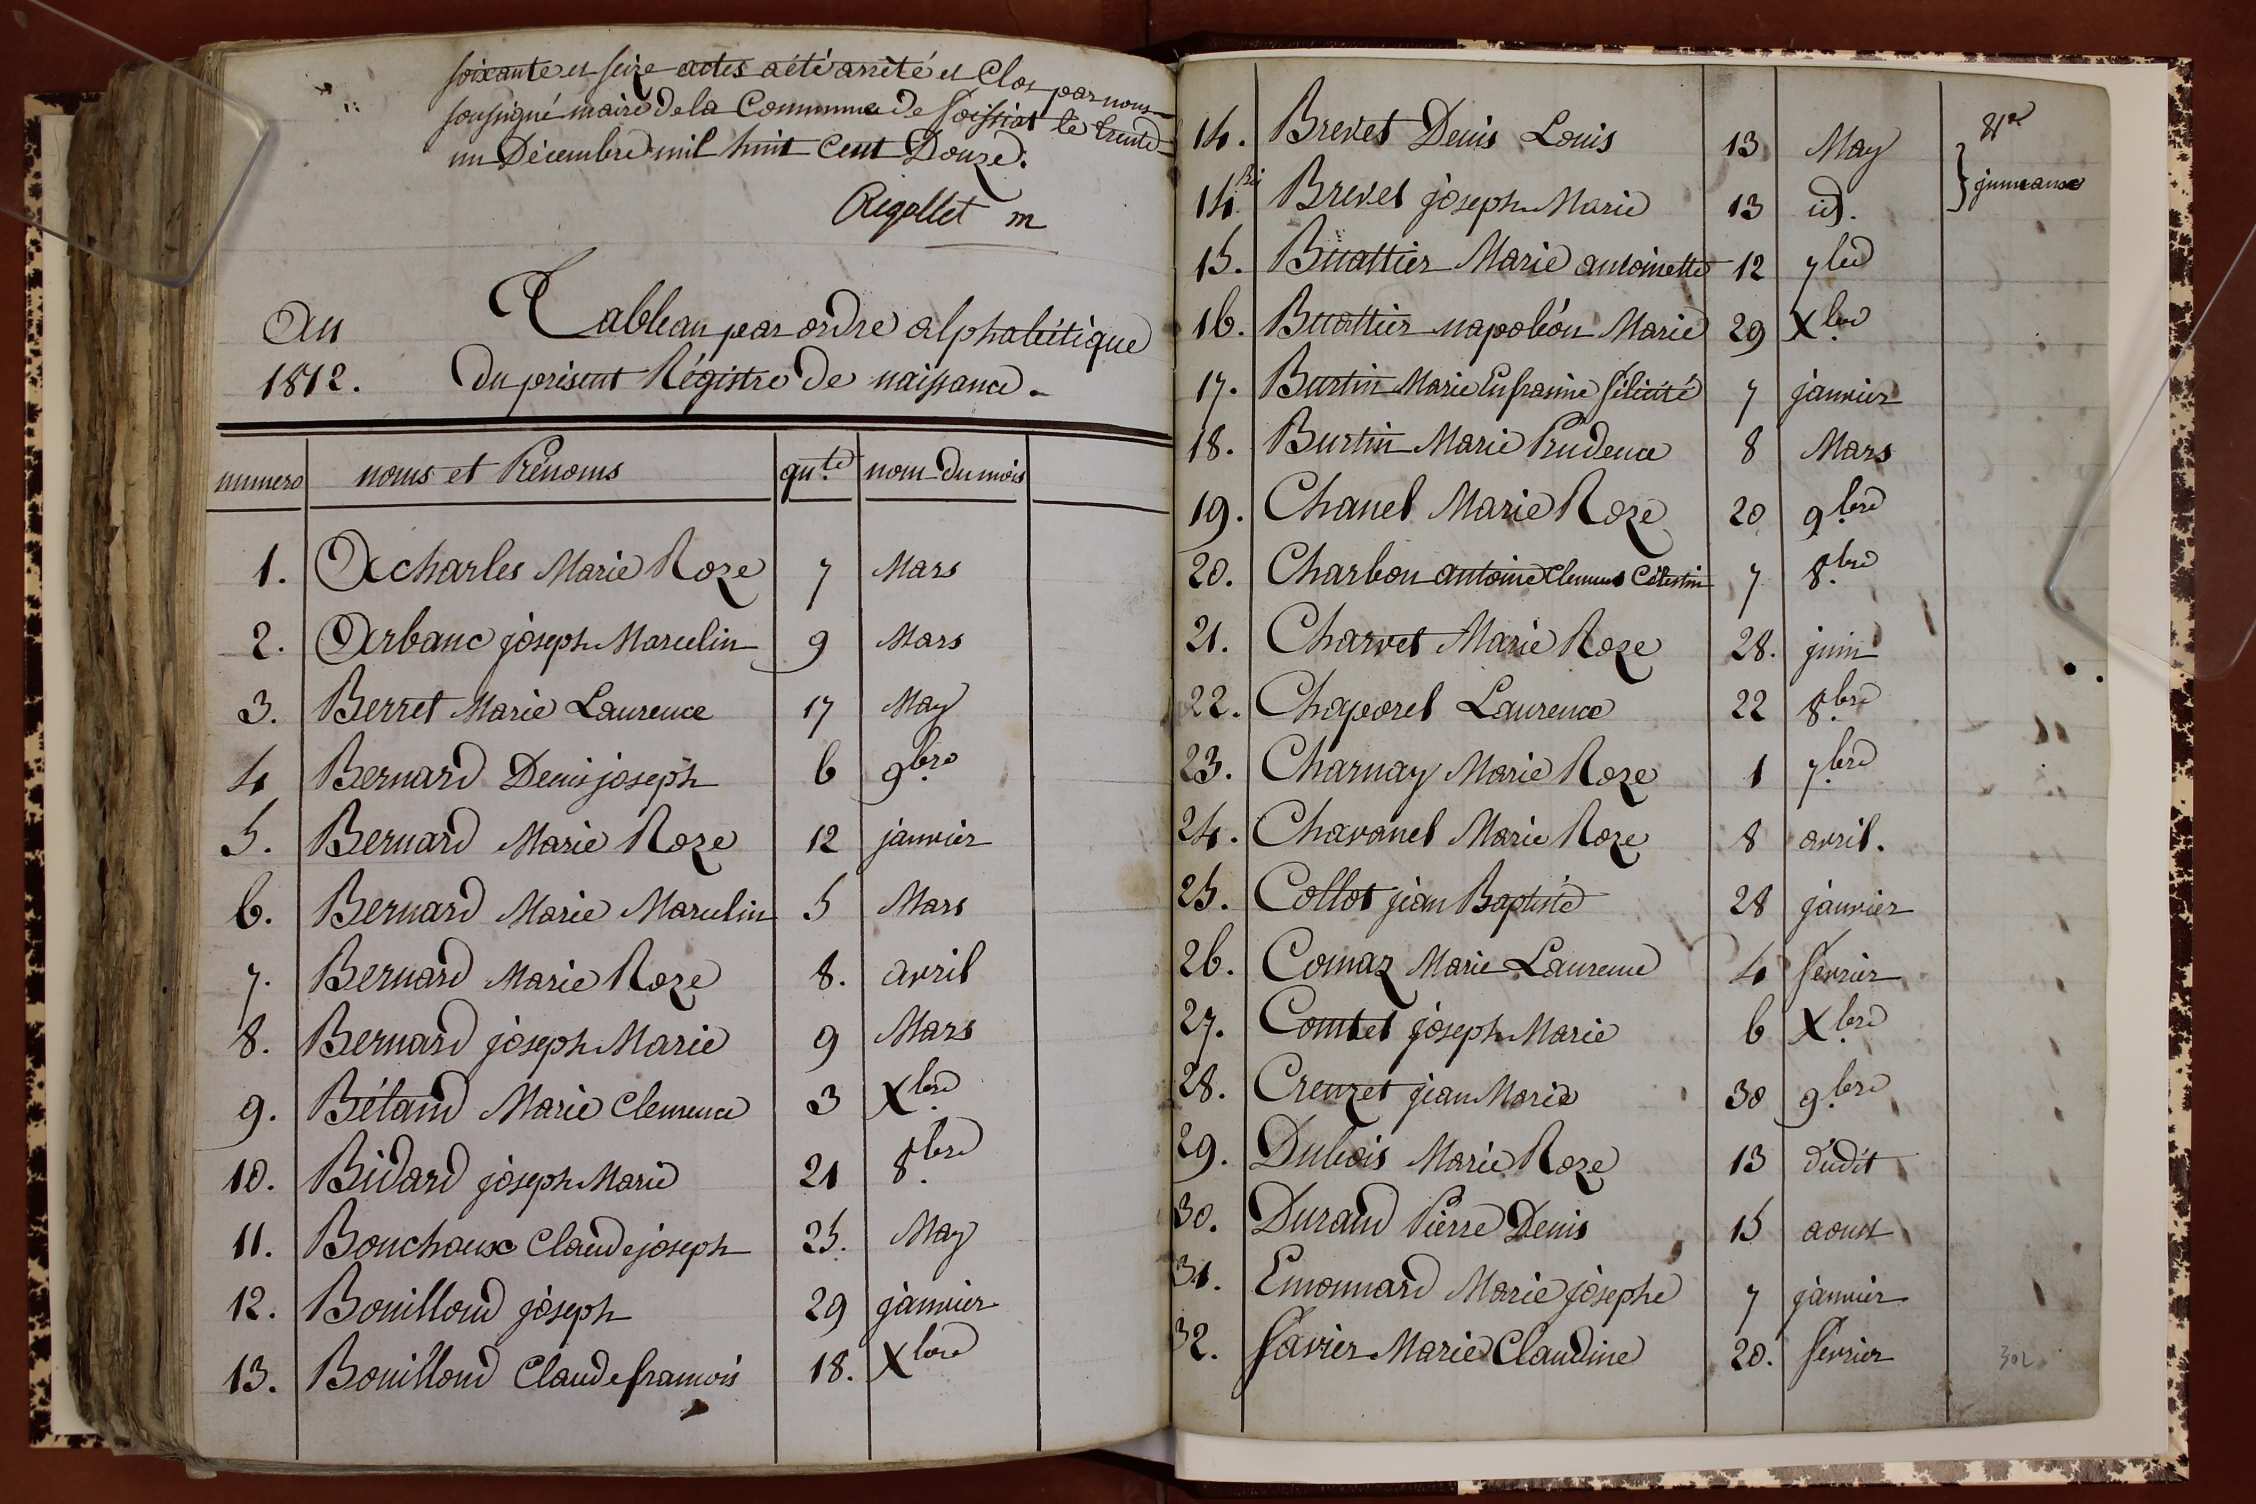 soixante et seize actes a été arrêté et Clos par nous
soussigné maire de la Commune de Soissiat le trente
un Décembre mil huit Cent Douze.
Rigollet m
An
1812.
Tableau par ordre alphabétique
du présent Régistre de naissance.
numero noms et Prénoms qnte nom du mois
1. Acharles Marie Roze 7 Mars
2. Arbanc joseph Marcelin 9 Mars
3. Berret Marie Laurence 17 May
4 Bernard Denis joseph 6 9bre
5. Bernard Marie Roze 12 janvier
6. Bernard Marie Marcelin 5 Mars
7. Bernard Marie Roze 8. avril
8. Bernard joseph Marie 9 Mars
9. Bétand Marie Clemence 3 Xbre
10. Bidard joseph Marie 21 8bre
11. Bouchoux Claude joseph 25. May
12. Bouilloud joseph 29 janvier
13. Bouilloud Claude francois 18. Xbre
14. Brevet Denis Louis 13 May
14 Bis Brevet joseph Marie 13 id. jumeaux
15. Buattier Marie antoinette 12 7bre
16. Buattier napoléon Marie 29 Xbre
17. Burtin Marie Eufrasine félicité 7 janvier
18. Burtin Marie Prudence 8 Mars
19. Chanel Marie Roze 20 9bre
20. Charbon antoine Clement Célestin 7 8bre
21. Charvet Marie Roze 28. juin
22. Chaporel Laurence 22 8bre
23. Charnay Marie Roze 1 7bre
24. Chavanel Marie Roze 8 avril.
25. Collot jean Baptiste 28 janvier
26. Comaz Marie Laurence 4 février
27. Comtet joseph Marie 6 Xbre
28. Creuzet jean Marie 30 9bre
29. Dubois Marie Roze 13 dudit
30. Durand Pierre Denis 15 aoust
31. Emonnard Marie josephe 7 janvier
32. favier Marie Claudine 20. février
302